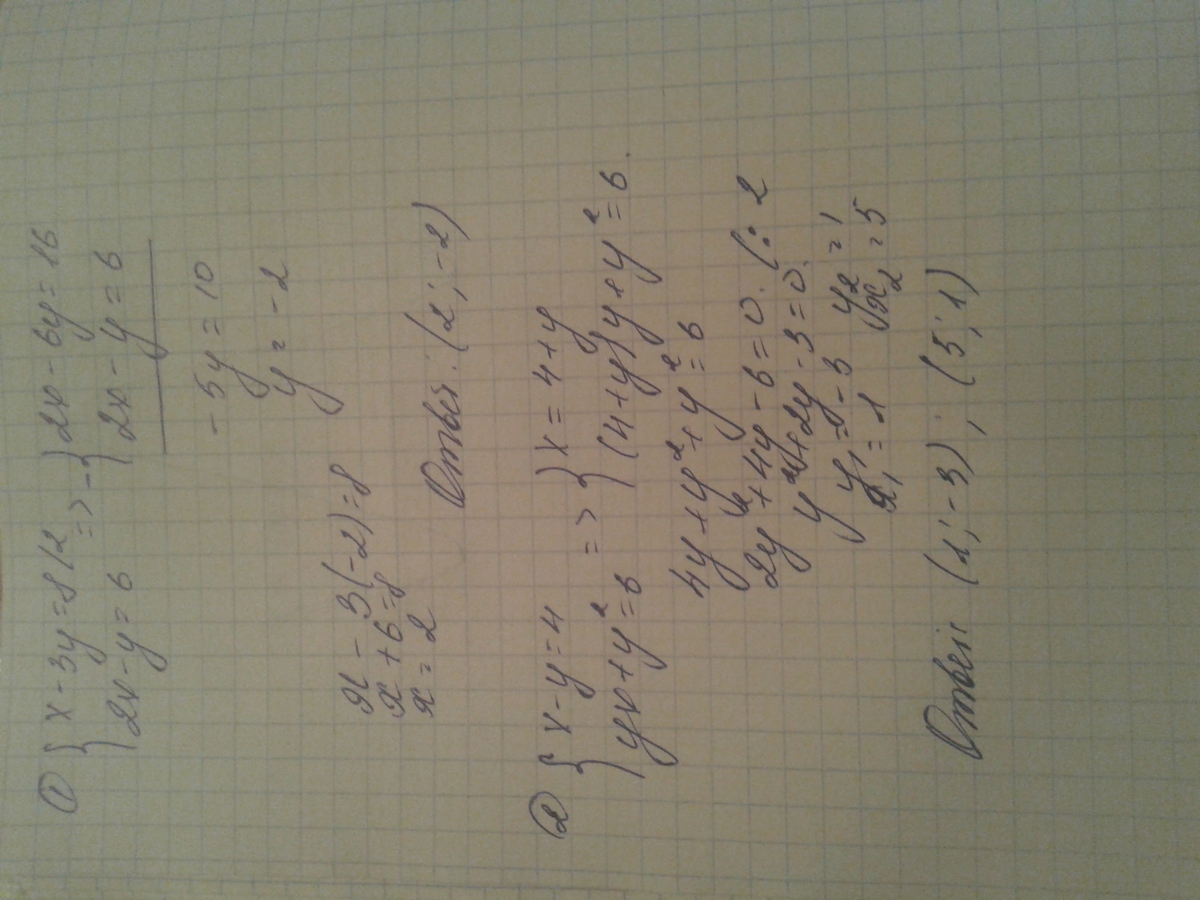 ① { x - 3y = 8 | 2 => - { 2x - 6y = 16
2x - y = 6 2x - y = 6
- 5y = 10
y = -2
x - 3(-2) = 8
x + 6 = 8
x = 2
Ответ: (2; -2)
② { x - y = 4 => { x = 4 + y
yx + y² = 6 (4 + y)y + y² = 6.
4y + y² + y² = 6
2y² + 4y - 6 = 0. (: 2
y² + 2y - 3 = 0.
y₁ = -3 y₂ = 1
x₁ = 1 x₂ = 5
Ответ: (1; -3); (5; 1)